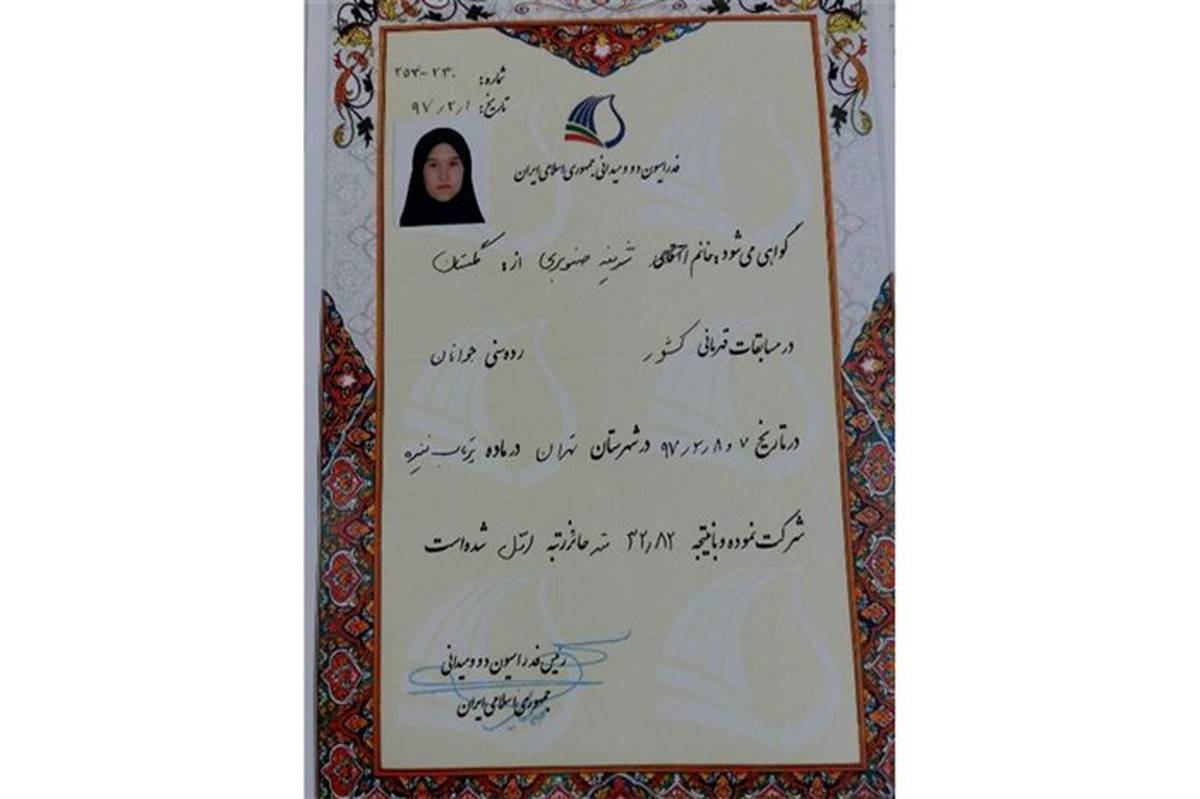 شماره: ۲۵۳-۲۳۰
تاریخ: ۹۷٫۲٫۱
فدراسیون دو و میدانی جمهوری اسلامی ایران
گواهی می‌شود: خانم / آقای صنوبری از: گلستان
در مسابقات قهرمانی کشور رده سنی جوانان
در تاریخ ۷ و ۸ ٫۲٫ ۹۷ در شهرستان تهران در ماده پرتاب نیزه
شرکت نموده و با نتیجه ۳۲٫۸۲ متر حائز رتبه اول شده است
رئیس فدراسیون دو و میدانی
جمهوری اسلامی ایران